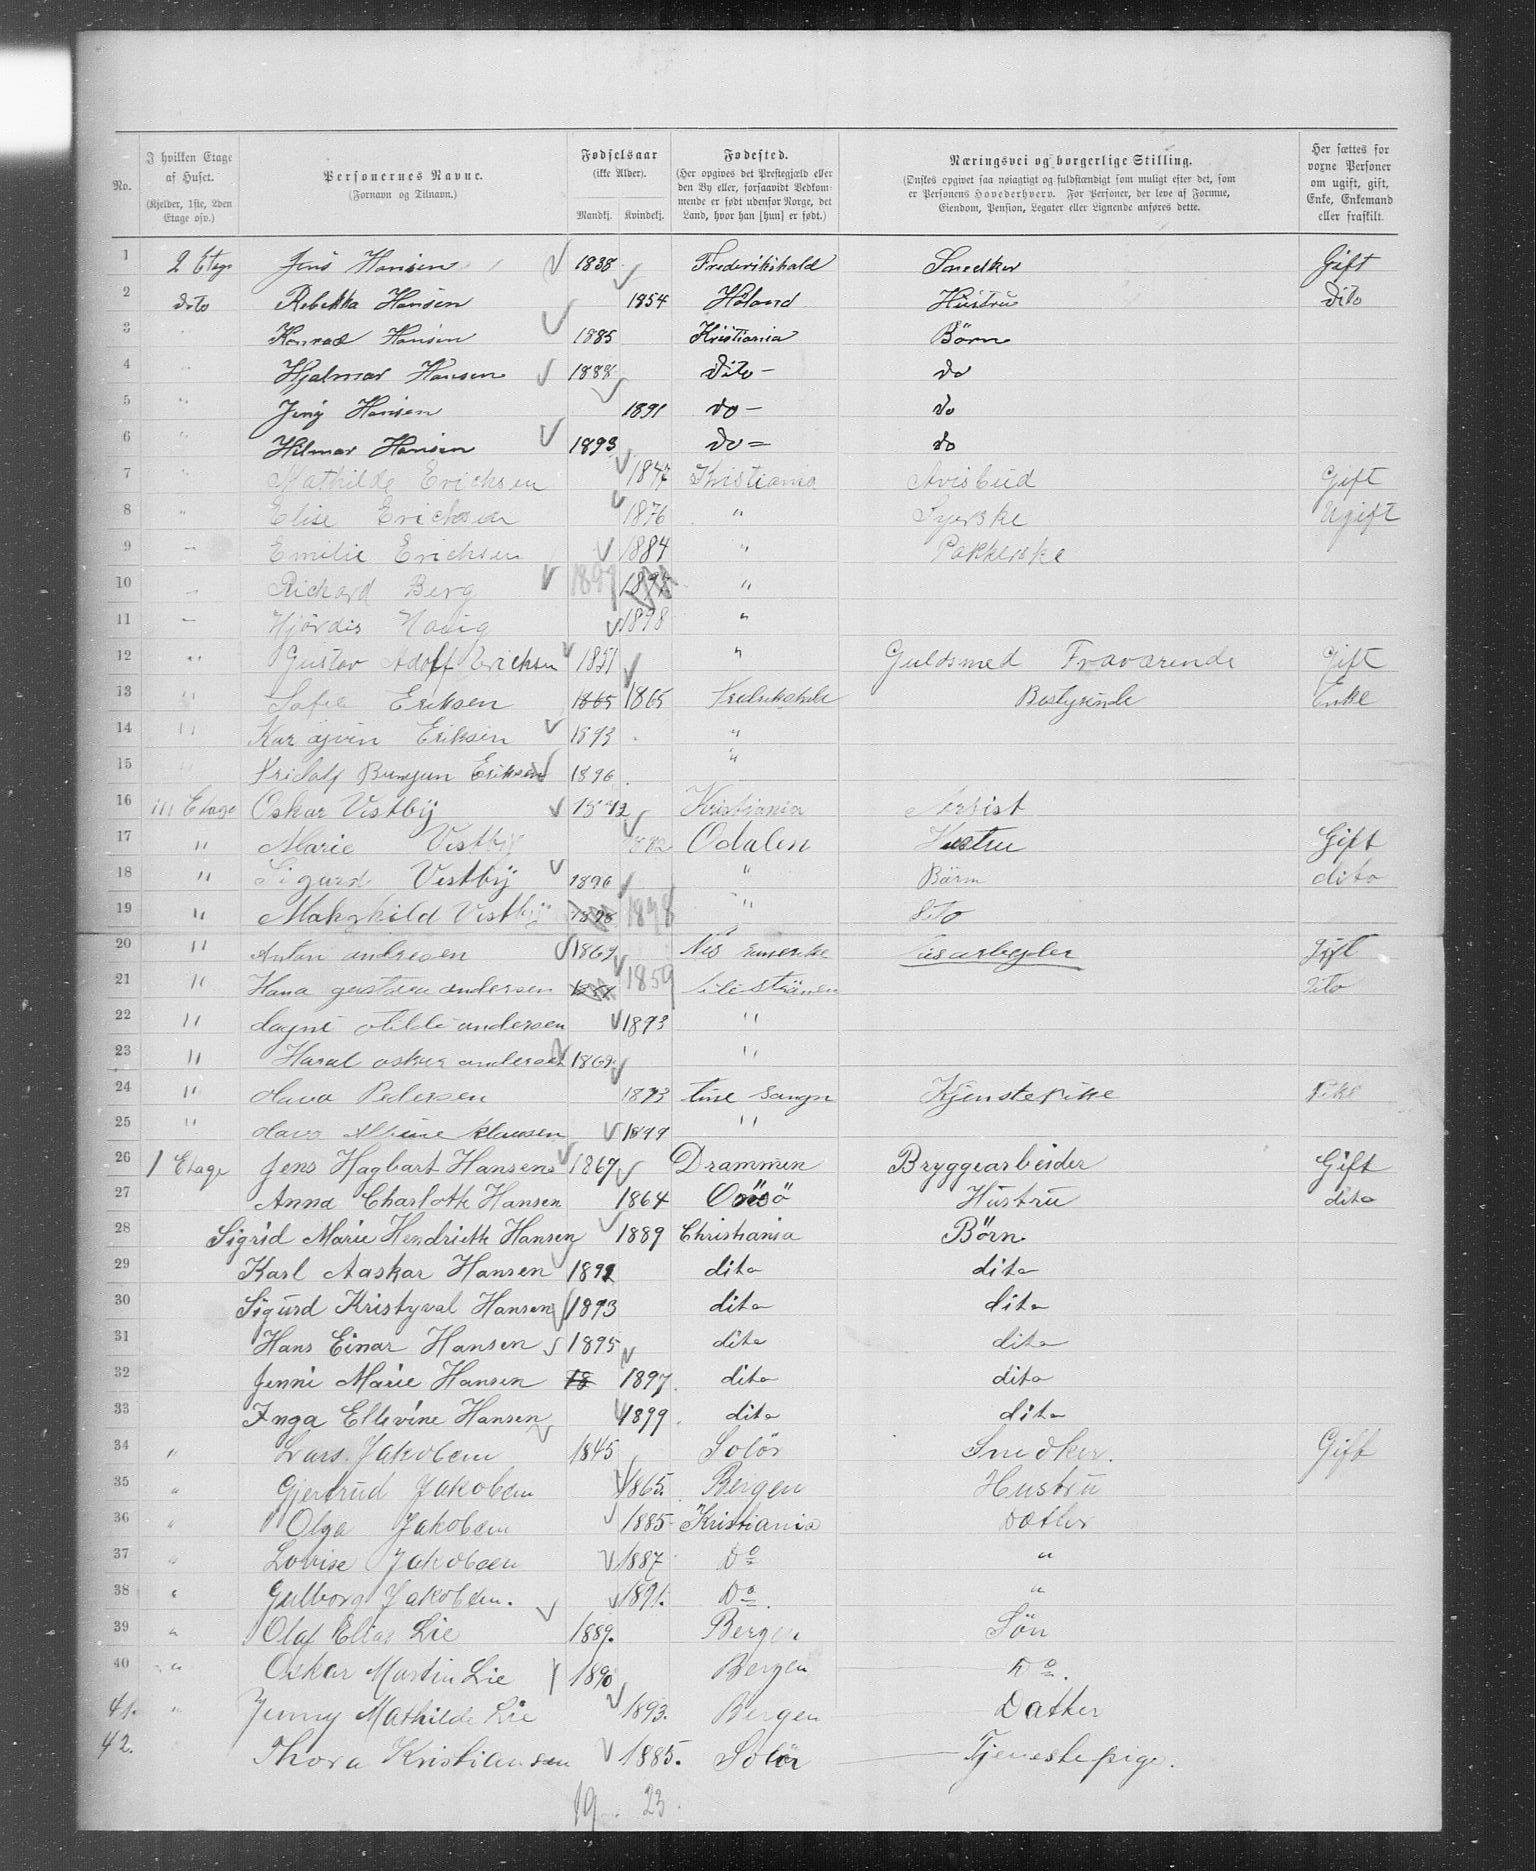 No.
I hvilken Etage af Huset.
(Kjelder, 1ste, 2den Etage osv.)
Personernes Navne.
(Fornavn og Tilnavn.)
Fødselsaar
(ikke Alder).
Mandkj. Kvindekj.
Fødested.
(Her opgives det Prestegjæld eller den By eller, forsaavidt Vedkommende er født udenfor Norge, det Land, hvor han [hun] er født.)
Næringsvei og borgerlige Stilling.
(Ønskes opgivet saa nøiagtigt og fuldstændigt som muligt efter det, som er Personens Hovederhverv. For Personer, der leve af Formue, Eiendom, Pension, Legater eller Lignende anføres dette.
Her sættes for voxne Personer om ugift, gift, Enke, Enkemand eller fraskilt.
1 2 Etage Jens Hansen 1838 Frederikshald Snedker Gift
2 dito Rebekka Hansen 1854 Höland Hüstrü dito
3 Konrad Hansen 1885 Kristiania Börn
4 " Hjalmar Hansen 1888 dito - do
5 " Jenÿ Hansen 1891 do - do
6 " Hilmar Hansen 1893 do = do
7 " Mathilde Erichsen 1847 Kristiania Avisbud Gift
8 " Elise Erichsen 1876 " Syerske Ugift
9 " Emilie Erichsen 1884 " Pakkerske
10 " Richard Berg 1897 "
11 " Hjördis 1898 "
12 " Gustav Adolf Erichsen 1851 " Guldsmed Fraværende Gift
13 " Sofie Eriksen 1865 1865 Bestyrinde Enke
14 " Eriksen 1893 "
15 " Eriksen 1896 "
16 III Etage Oskar Vestbÿ Kristiania
17 " Marie Vestbÿ Odalen Hustru Gift
18 " Sigurd Vestbÿ 1896 " Börn dito
19 " Vestbÿ 1898 1898 " dito
20 " Anton andresen 1869 Nes Gift
21 " Hana andersen 1859 dito
22 " dagni andersen 1893 "
23 " Haral oskar andersen 1869 "
24 " Pedersen 1873
25 " Klausen 1899 "
26 1 Etage Jens Hagbart Hansen 1867 Drammen Bryggearbeider Gift
27 Anna Charlotte Hansen 1864 Hüstrü dito
28 Sigrid Marie Hendriette Hansen 1889 Christiania Börn
29 Karl Aaskar Hansen 1892 dito dito
30 Sigürd Kristyval Hansen 1893 dito dito
31 Hans Einar Hansen 1895 dito dito
32 Jenni Marie Hansen 18 1897. dito dito
33 Inga Ellevine Hansen 1899. dito dito
34 " Lars Jakobsen 1845 Solör Snedker. Gift
35 " Gjertrüd Jakobsen 1865. Bergen Hustrü
36 " Olga Jakobsen 1885 Kristiania Datter
37 " Lovise Jakobsen 1887 Do "
38 " Gulborg Jakobsen. 1891. Do. "
39 " Olaf Elias Lie 1889. Bergen Sön
40 " Oskar Martin Lie 1890 Bergen Do.
41. " Jenny Mathilde Lie 1893. Bergen Datter
42. Thora Kristiansen 1885. Solör Tjenestepige.
19 23.